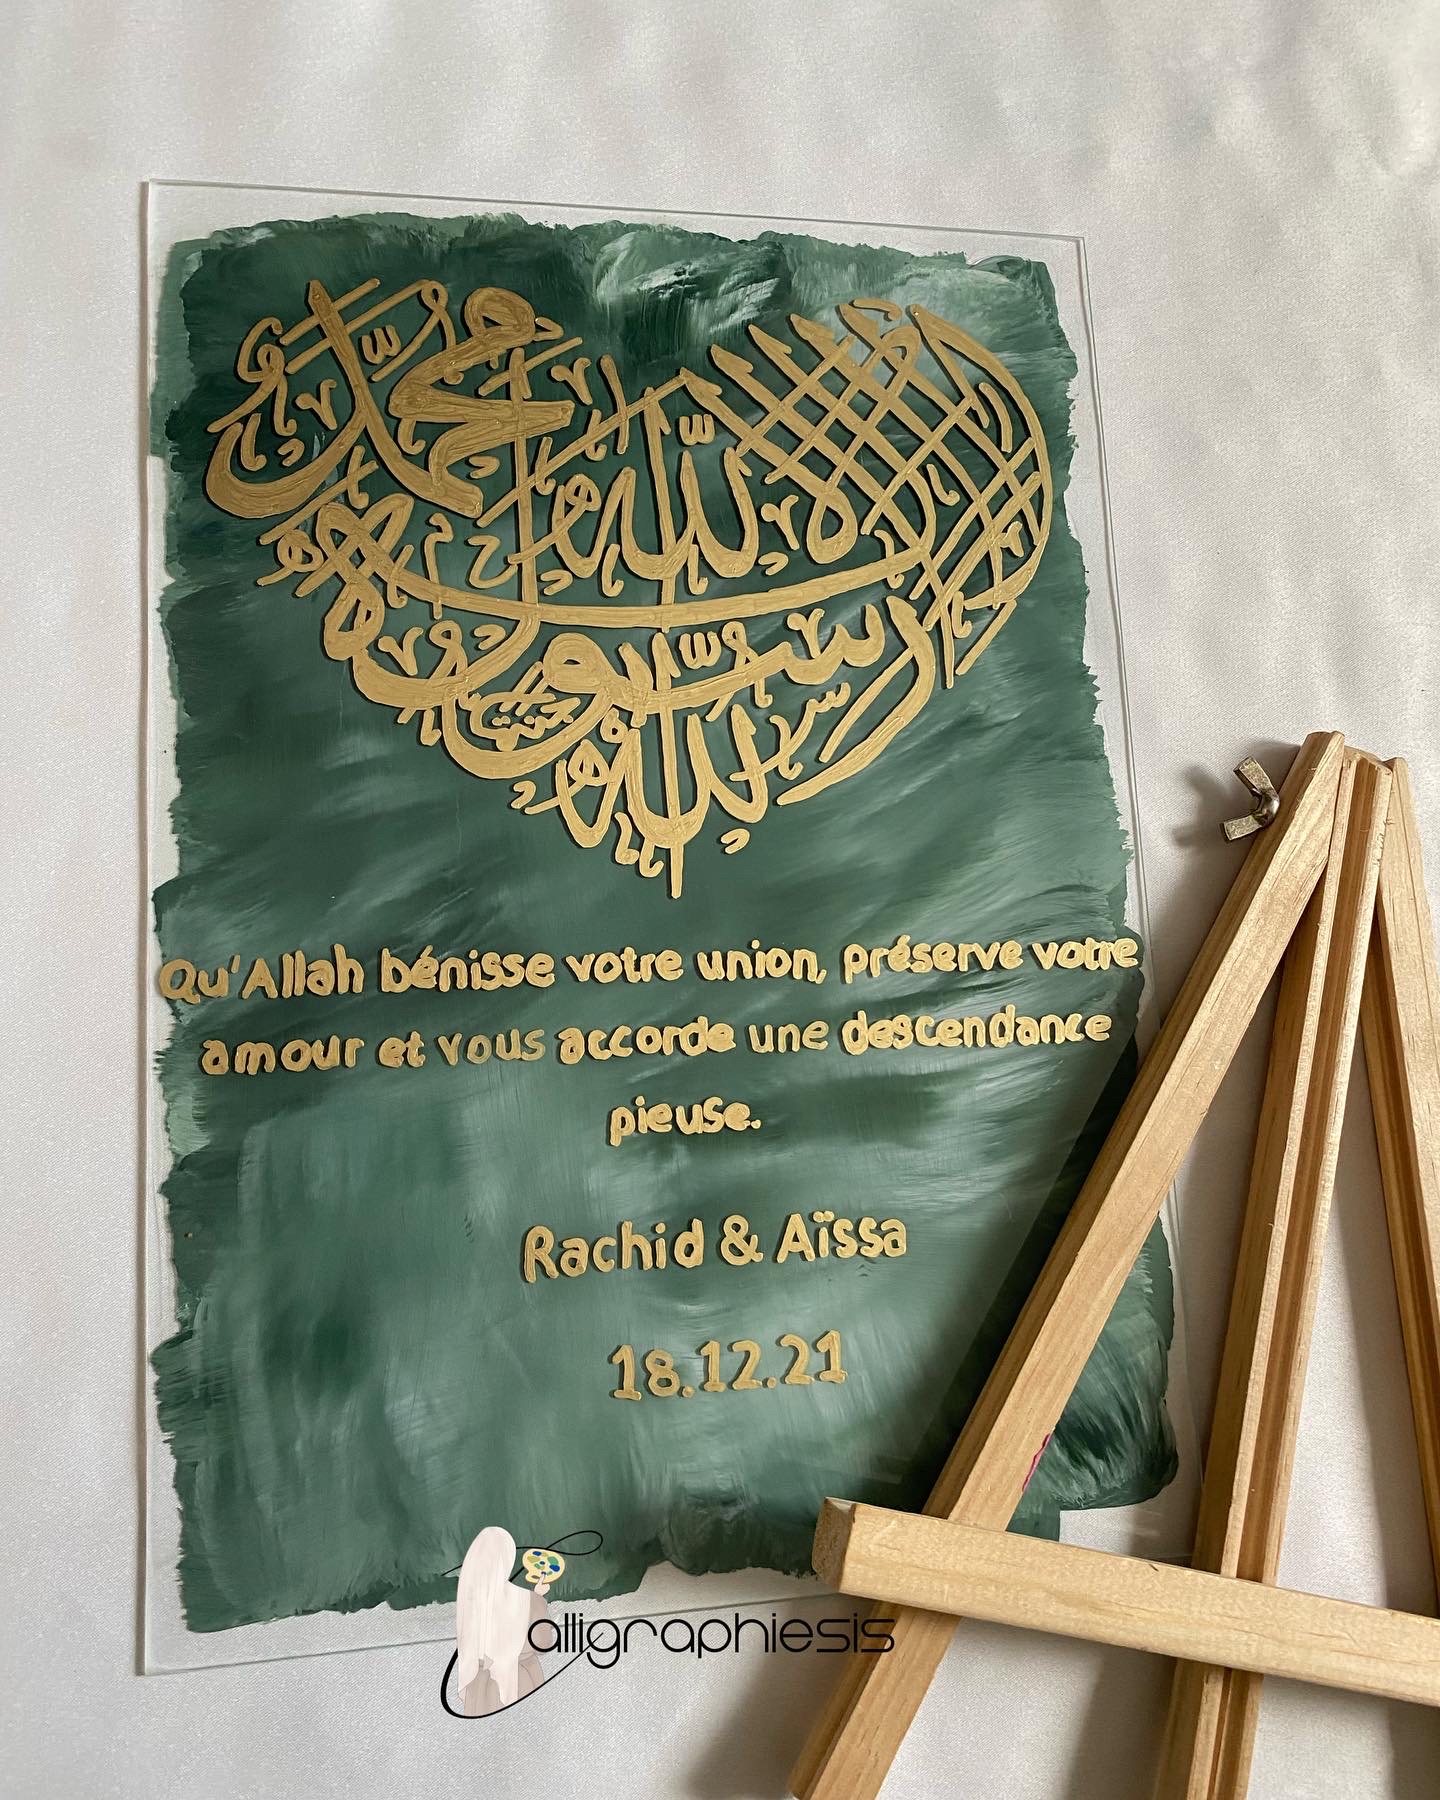 لا إله إلا الله
محمد رسول الله
Qu'Allah bénisse votre union, préserve votre
amour et vous accorde une descendance
pieuse.
Rachid & Aïssa
18.12.21
Calligraphiesis